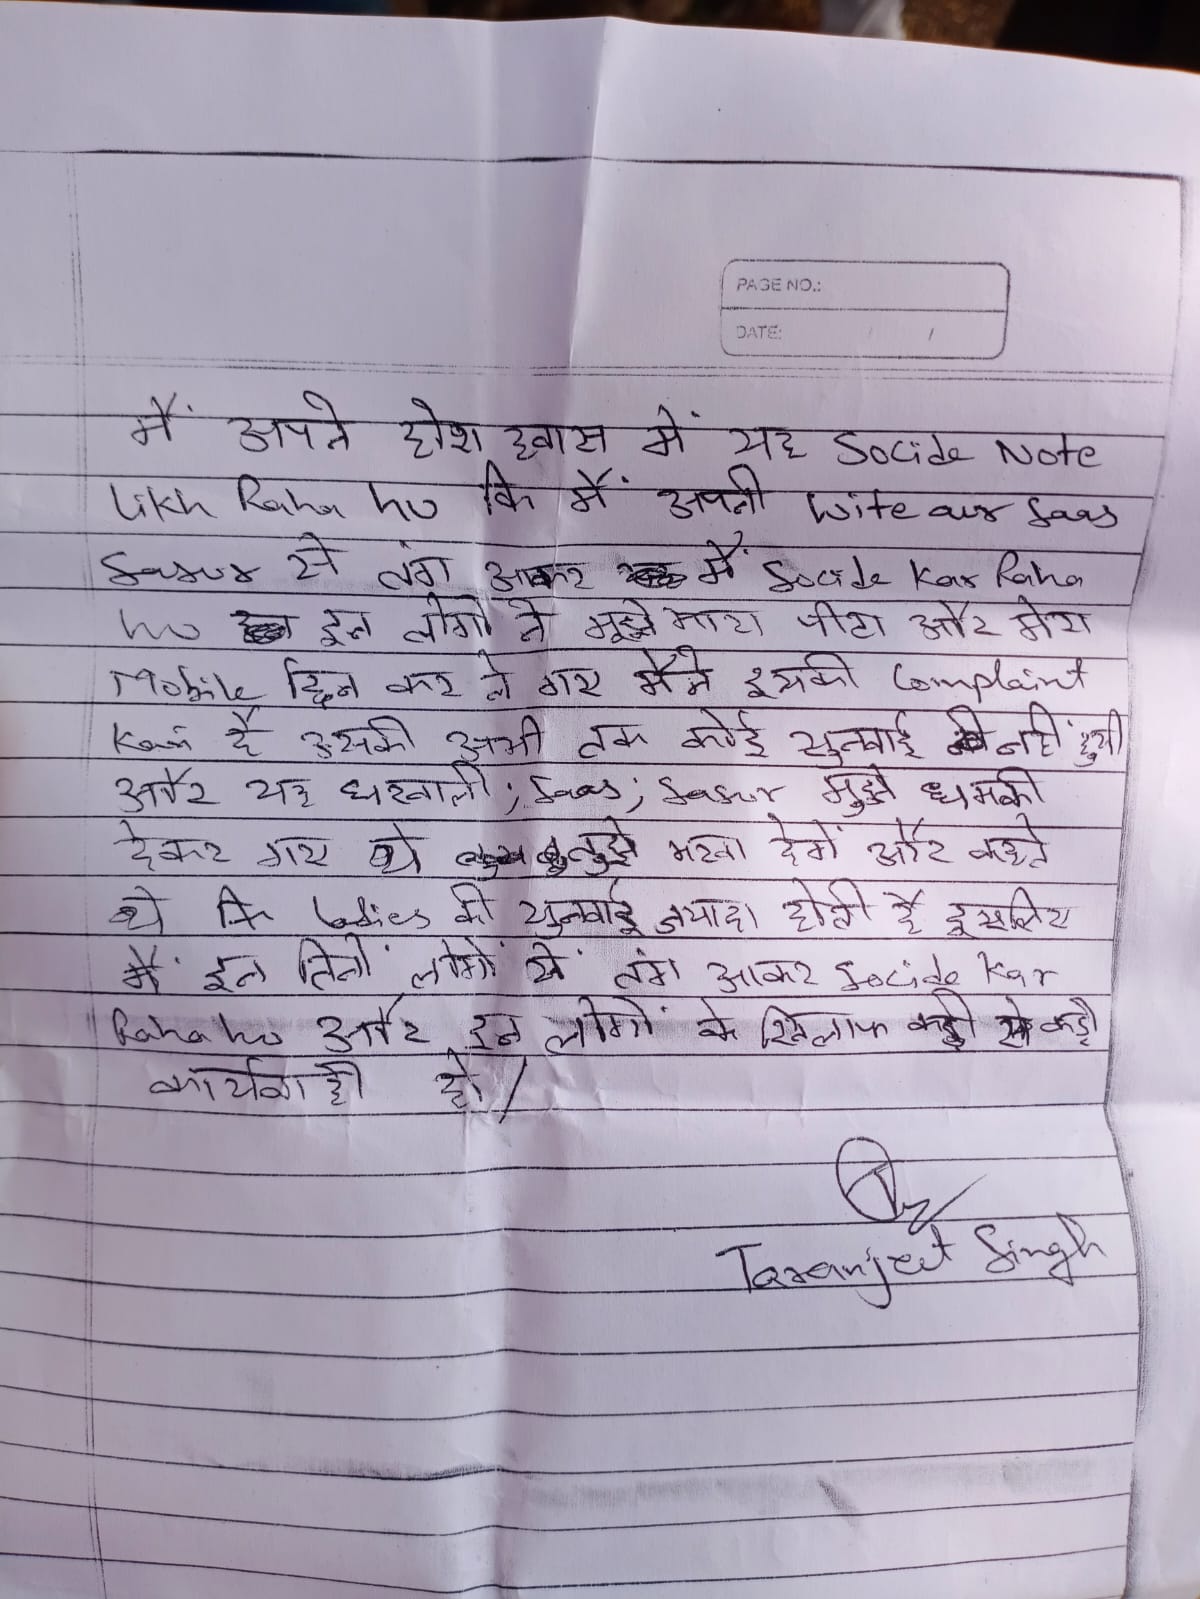 PAGE NO.:
DATE: / /
मैं अपने होश हवास में यह Socide Note
likh Raha hu कि मैं अपनी wife aur Saas
Sasur से तंग आकर मैं Socide Kar Raha
hu इन लोगो ने मुझे मारा पीटा और मेरा
Mobile छिन कर ले गए मैने इसकी Complaint
Kari है उसकी अभी तक कोई सुनवाई नहीं हुयी
और यह घरवाली ; Saas ; Sasur मुझे धमकी
देकर गए थे तुझे मरवा देगें और कहते
थे कि ladies की सुनवाई ज्यादा होती है इसलिए
मैं इन तिनों लोगों से तंग आकर Socide Kar
Raha hu और इन लोगों के खिलाफ कड़ी से कड़ी
कार्यवाही हो/
Taranjeet Singh